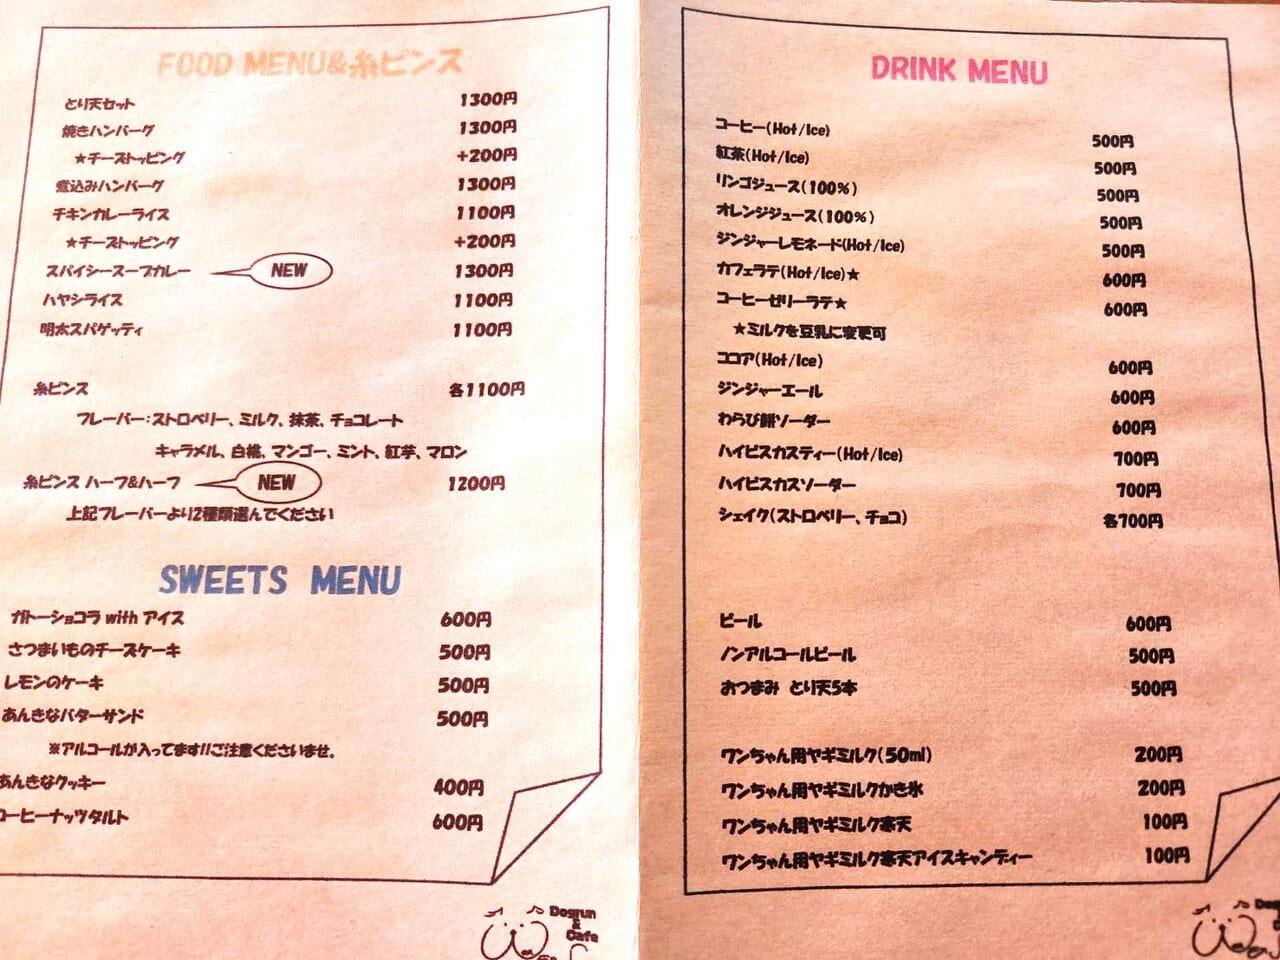 FOOD MENU&糸ピンス
とり天セット 1300円
焼きハンバーグ 1300円
★チーズトッピング +200円
煮込みハンバーグ 1300円
チキンカレーライス 1100円
★チーズトッピング +200円
スパイシースープカレー NEW 1300円
ハヤシライス 1100円
明太スパゲッティ 1100円
糸ピンス 各1100円
フレーバー：ストロベリー、ミルク、抹茶、チョコレート
キャラメル、白桃、マンゴー、ミント、紅芋、マロン
糸ピンス ハーフ&ハーフ NEW 1200円
上記フレーバーより2種類選んでください
SWEETS MENU
ガトーショコラ with アイス 600円
さつまいものチーズケーキ 500円
レモンのケーキ 500円
あんきなバターサンド 500円
※アルコールが入ってます!!ご注意くださいませ。
あんきなクッキー 400円
コーヒーナッツタルト 600円
Dogrun
&
Cafe
DRINK MENU
コーヒー(Hot/Ice) 500円
紅茶(Hot/Ice) 500円
リンゴジュース(100%) 500円
オレンジジュース(100%) 500円
ジンジャーレモネード(Hot/Ice) 500円
カフェラテ(Hot/Ice)★ 600円
コーヒーゼリーラテ★ 600円
★ミルクを豆乳に変更可
ココア(Hot/Ice) 600円
ジンジャーエール 600円
わらび餅ソーダー 600円
ハイビスカスティー(Hot/Ice) 700円
ハイビスカスソーダー 700円
シェイク(ストロベリー、チョコ) 各700円
ビール 600円
ノンアルコールビール 500円
おつまみ とり天5本 500円
ワンちゃん用ヤギミルク(50ml) 200円
ワンちゃん用ヤギミルクかき氷 200円
ワンちゃん用ヤギミルク寒天 100円
ワンちゃん用ヤギミルク寒天アイスキャンディー 100円